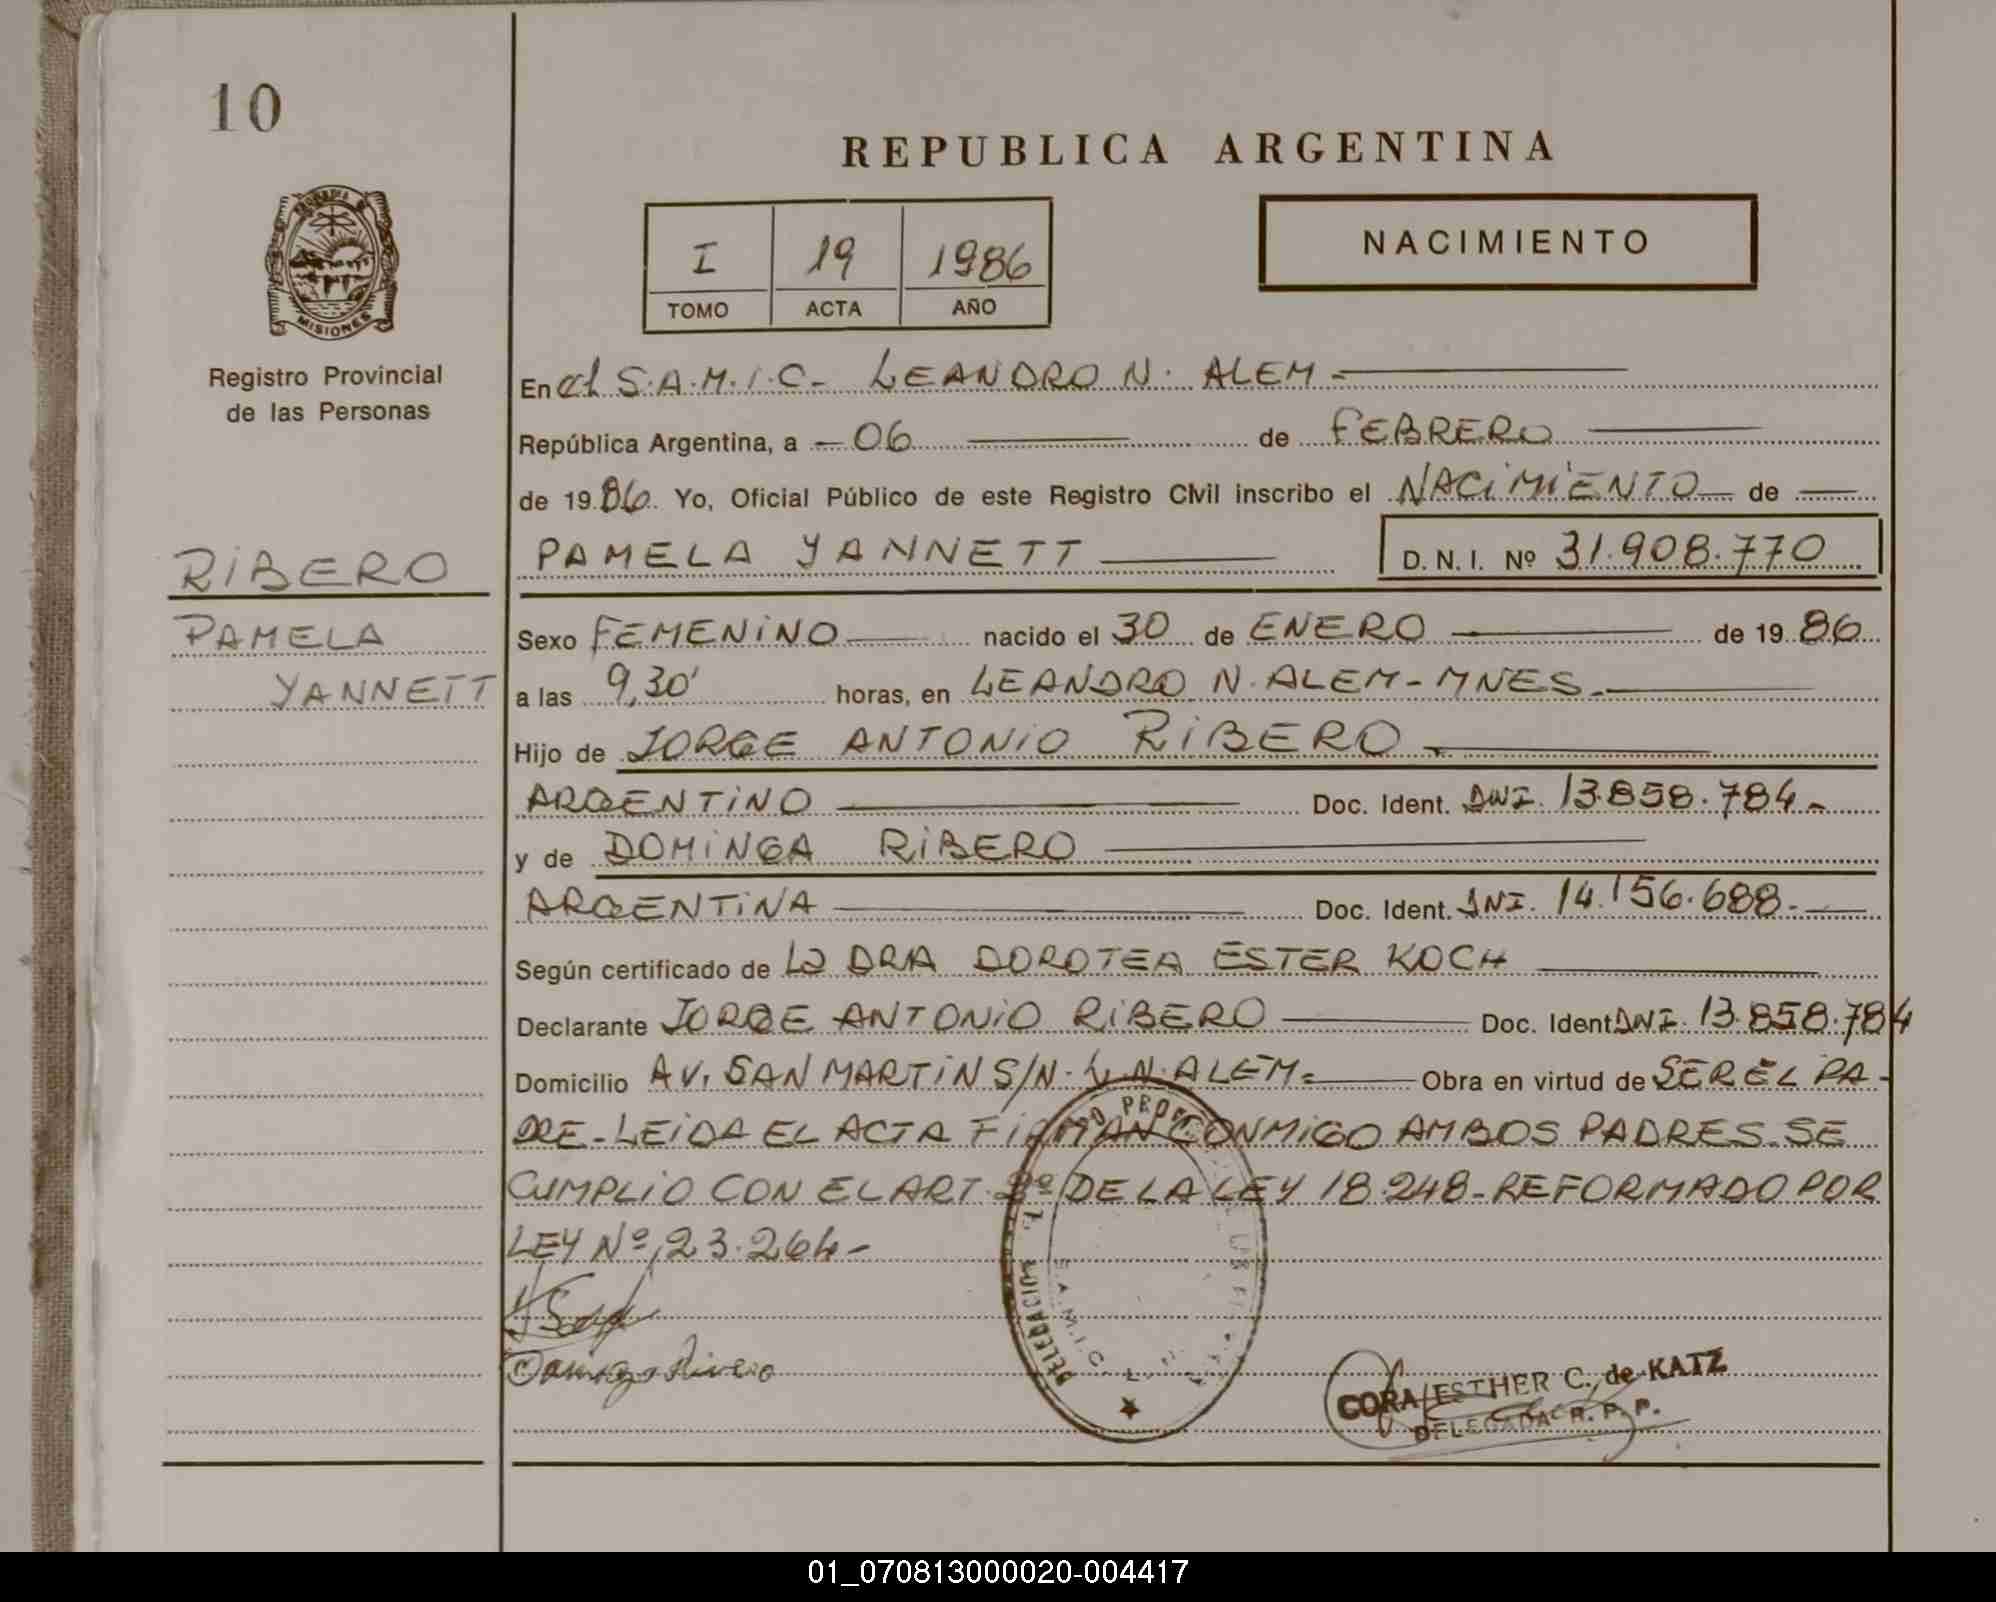 10
REPUBLICA ARGENTINA
I 19 1986
TOMO ACTA AÑO
NACIMIENTO
MISIONES
Registro Provincial
de las Personas
En el S.A.M.I.C. LEANDRO N. ALEM
República Argentina, a 06 de FEBRERO
de 1986 Yo, Oficial Público de este Registro Civil inscribo el NACIMIENTO de
RIBERO
PAMELA YANNETT D. N. I. Nº 31.908.770
PAMELA
YANNETT
Sexo FEMENINO nacido el 30 de ENERO de 1986
a las 9,30' horas, en LEANDRO N. ALEM-MNES.
Hijo de JORGE ANTONIO RIBERO
ARGENTINO Doc. Ident. DNI. 13.858.784
y de DOMINGA RIBERO
ARGENTINA Doc. Ident. DNI. 14.156.688
Según certificado de La DRA DOROTEA ESTER KOCH
Declarante JORGE ANTONIO RIBERO Doc. Ident DNI. 13.858.784
Domicilio AV. SAN MARTIN S/N. L.N. ALEM Obra en virtud de SER EL PA-
DRE-LEIDA EL ACTA FIRMAN CONMIGO AMBOS PADRES. SE
CUMPLIO CON EL ART. 2º DE LA LEY 18.248-REFORMADO POR
LEY Nº 23.264-
DELEGACION
S.A.M.I.C.
CORA ESTHER C. de KATZ
DELEGADA R. P. P.
01_070813000020-004417